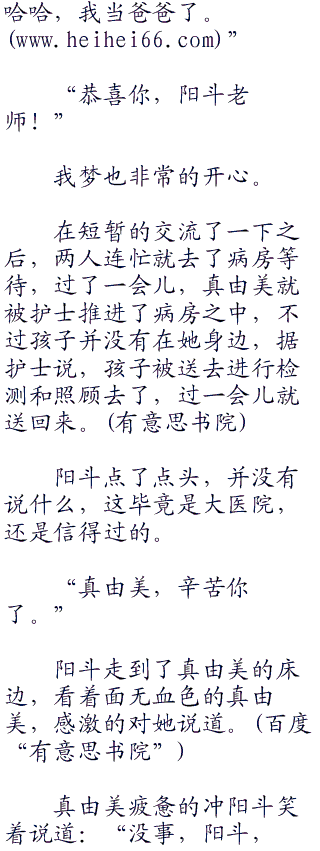 哈哈，我当爸爸了。
(www.heihei66.com)”
“恭喜你，阳斗老
师！”
我梦也非常的开心。
在短暂的交流了一下之
后，两人连忙就去了病房等
待，过了一会儿，真由美就
被护士推进了病房之中，不
过孩子并没有在她身边，据
护士说，孩子被送去进行检
测和照顾去了，过一会儿就
送回来。(有意思书院)
阳斗点了点头，并没有
说什么，这毕竟是大医院，
还是信得过的。
“真由美，辛苦你
了。”
阳斗走到了真由美的床
边，看着面无血色的真由
美，感激的对她说道。(百度
“有意思书院”)
真由美疲惫的冲阳斗笑
着说道：“没事，阳斗，